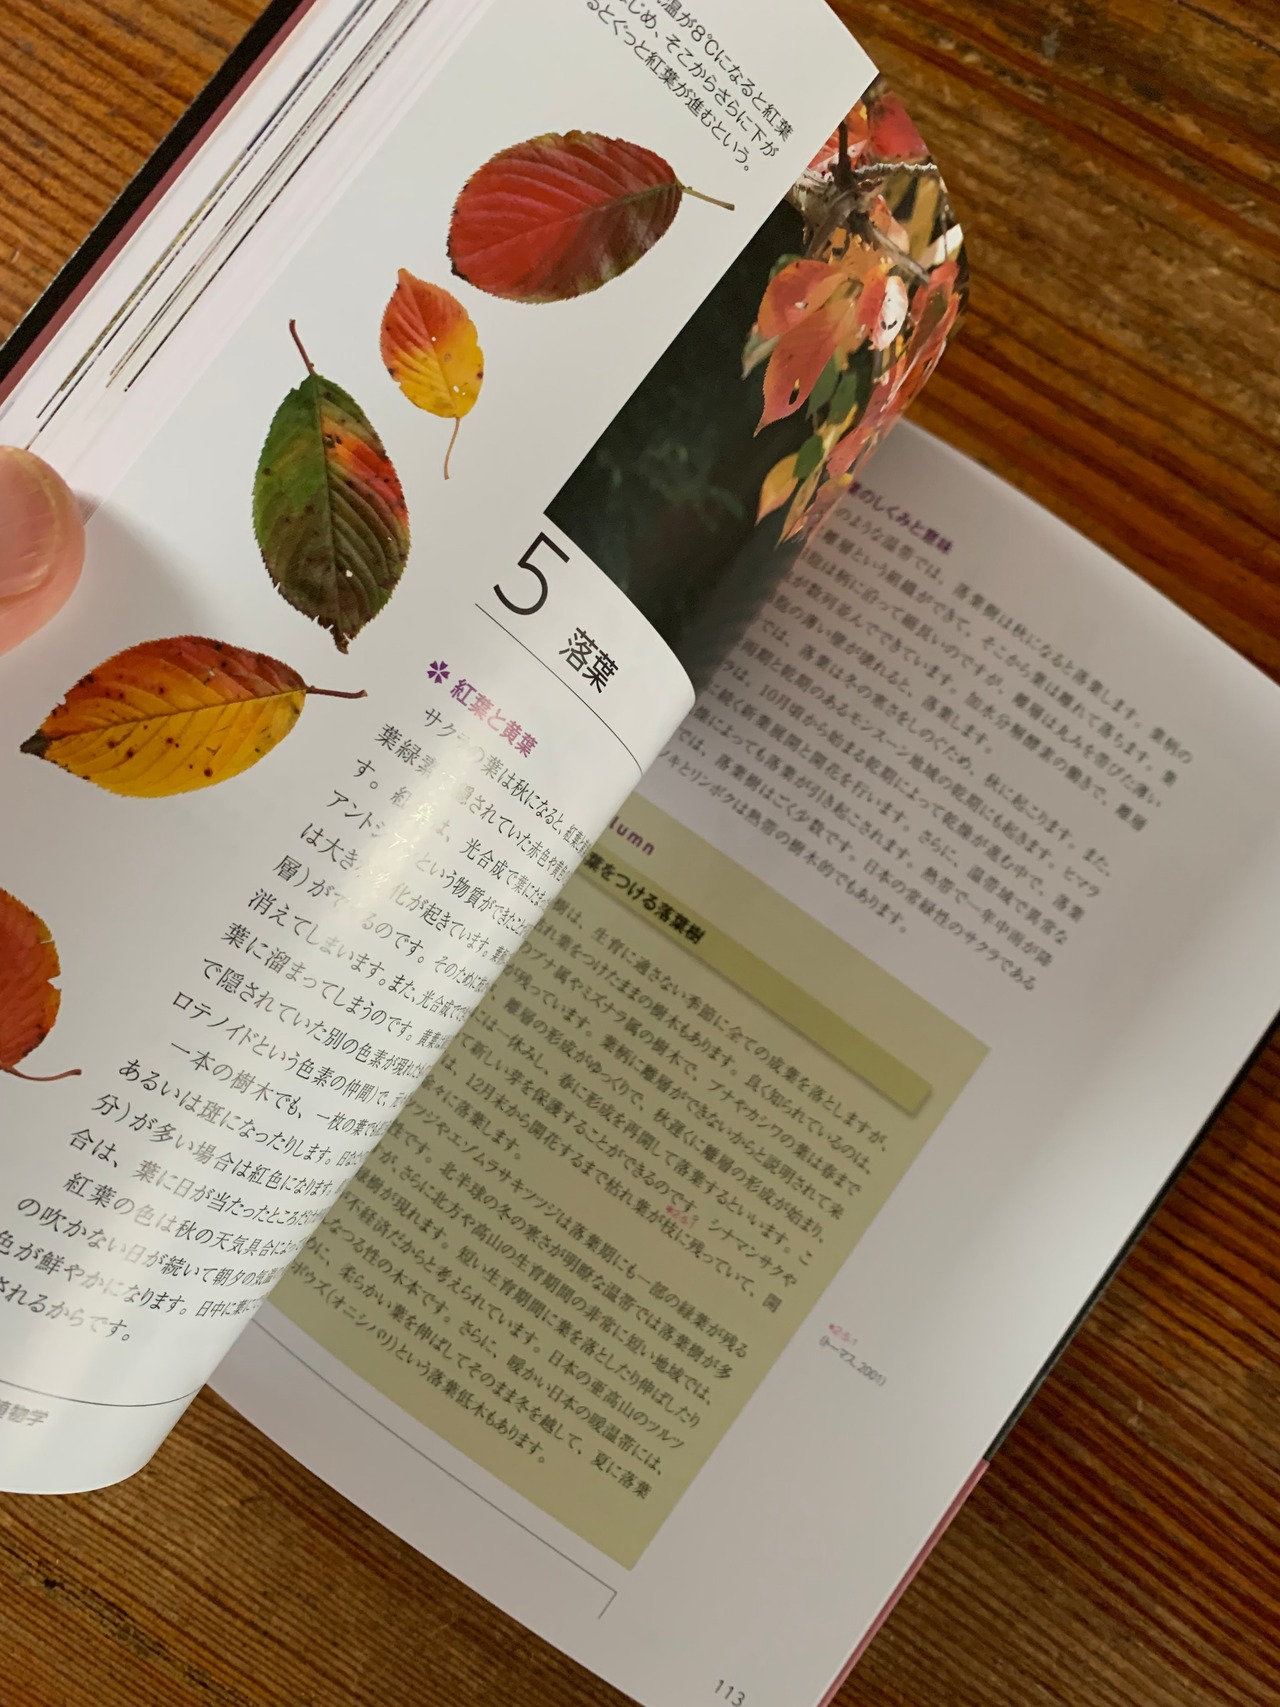 温が8℃になると紅葉
じめ、そこからさらに下が
るとぐっと紅葉が進むという。
5 落葉
紅葉と黄葉
サクラの葉は秋になると、紅葉
葉緑素 隠されていた赤色や黄色
す。紅葉は、光合成で葉にたま
アントシア という物質ができたこと
は大き 化が起きています。葉
層)ができるのです。そのために
消えてしまいます。また、光合成でで
葉に溜まってしまうのです。黄葉
で隠されていた別の色素が現れた
ロテノイドという色素の仲間)で、
一本の樹木でも、一枚の葉で
あるいは斑になったりします。日なた
分)が多い場合は紅色になります。
合は、葉に日が当たったところだけ
紅葉の色は秋の天気具合によ
の吹かない日が続いて朝夕の気温
色が鮮やかになります。日中に葉に
されるからです。
植物学
葉のしくみと意味
のような温帯では、落葉樹は秋になると落葉します。葉柄の
離層という組織ができて、そこから葉は離れて落ちます。葉
胞は柄に沿って細長いのですが、離層は丸みを帯びた薄い
が数列並んでできています。加水分解酵素の働きで、離層
胞の薄い壁が壊れると、落葉します。
では、落葉は冬の寒さをしのぐため、秋に起こります。また、
周期と乾期のあるモンスーン地域の乾期にも起きます。ヒマラ
ラは、10月頃から始まる乾期によって乾燥が進む中で、落葉
に続く新葉展開と開花を行います。さらに、温帯域で異常な
燥によっても落葉が引き起こされます。熱帯で一年中雨が降
では、落葉樹はごく少数です。日本の常緑性のサクラである
ノキとリンボクは熱帯の樹木的でもあります。
lumn
葉をつける落葉樹
樹は、生育に適さない季節に全ての成葉を落としますが、
枯れ葉をつけたままの樹木もあります。良く知られているのは、
のブナ属やミズナラ属の樹木で、ブナやカシワの葉は春まで
が残っています。葉柄に離層ができないからと説明されて来
、離層の形成がゆっくりで、秋遅くに離層の形成が始まり、
には一休みし、春に形成を再開して落葉するといいます。こ
て新しい芽を保護することができるのです。シナマンサクや
は、12月末から開花するまで枯れ葉が枝に残っていて、開
徐々に落葉します。
ツツジやエゾムラサキツツジは落葉期にも一部の緑葉が残る
性です。北半球の冬の寒さが明瞭な温帯では落葉樹が多
が、さらに北方や高山の生育期間の非常に短い地域では、
緑樹が現れます。短い生育期間に葉を落としたり伸ばしたり
不経済だからと考えられています。日本の亜高山のツルツ
なつる性の木本です。さらに、暖かい日本の暖温帯には、
めに、柔らかい葉を伸ばしてそのまま冬を越して、夏に落葉
ボウズ(オニシバリ)という落葉低木もあります。
*2-5-1
(トーマス、2001)
113